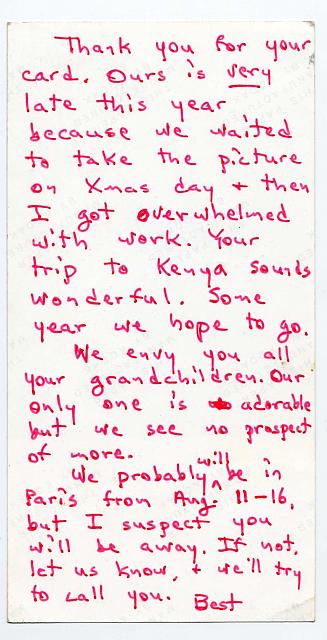 Thank you for your
card. Ours is very
late this year
because we waited
to take the picture
on Xmas day + then
I got overwhelmed
with work. Your
trip to Kenya sounds
wonderful. Some
year we hope to go.
We envy you all
your grandchildren. Our
only one is adorable
but we see no prospect
of more.
We probably will be in
Paris from Aug. 11-16,
but I suspect you
will be away. If not,
let us know, + we'll try
to call you. Best